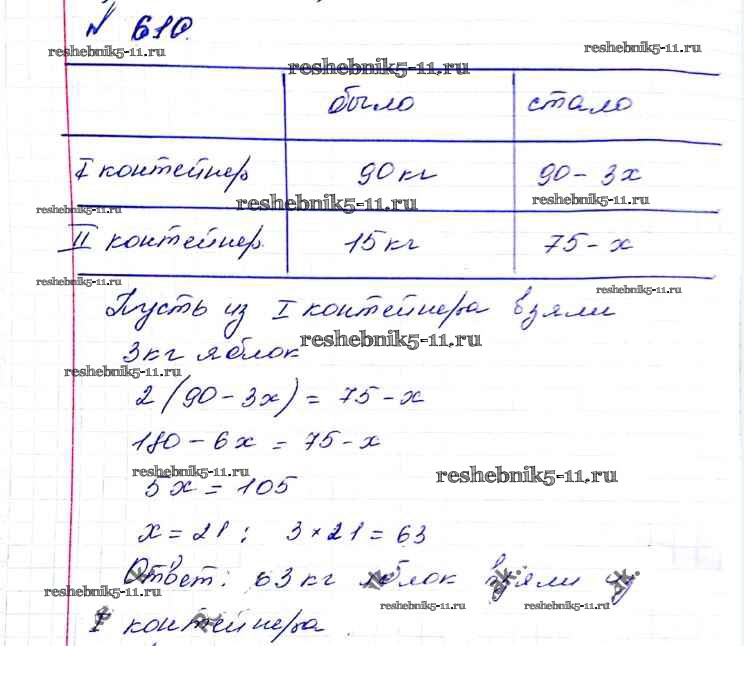 № 610.
reshebnik5-11.ru reshebnik5-11.ru
reshebnik5-11.ru
было стало
I контейнер 90 кг 90 - 3x
reshebnik5-11.ru reshebnik5-11.ru reshebnik5-11.ru
II контейнер. 15 кг 75 - x
reshebnik5-11.ru reshebnik5-11.ru
Пусть из I контейнера взяли
reshebnik5-11.ru
3кг яблок
reshebnik5-11.ru
2(90 - 3x) = 75 - x
180 - 6x = 75 - x
reshebnik5-11.ru reshebnik5-11.ru
5x = 105
x = 21; 3 × 21 = 63
Ответ: 63 кг яблок взяли из
reshebnik5-11.ru reshebnik5-11.ru reshebnik5-11.ru
I контейнера.